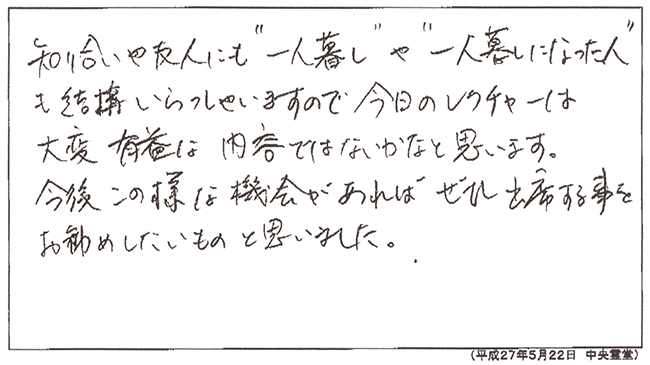 知り合いや友人にも"一人暮し"や"一人暮しになった人"
も結構いらっしゃいますので今日のレクチャーは
大変有益な内容ではないかなと思います。
今後この様な機会があれば ぜひ出席する事を
お勧めしたいものと思いました。
(平成27年5月22日 中央霊堂)